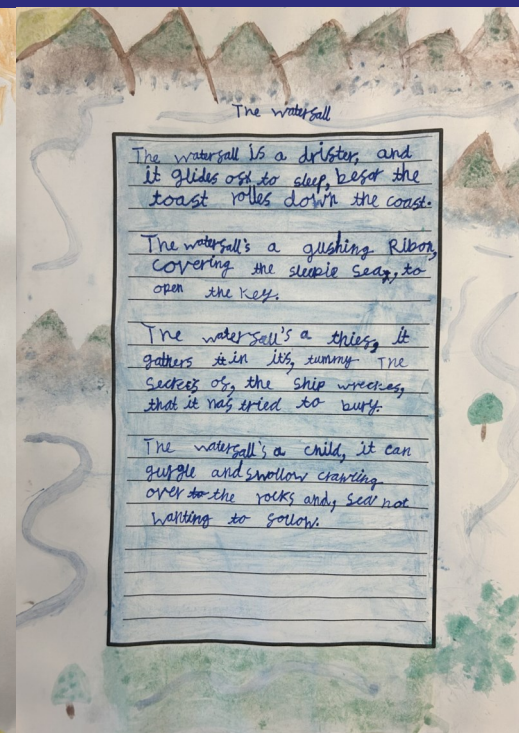 The waterfall
The waterfall is a drifter, and
it glides off to sleep, befor the
toast rolles down the coast.
The waterfall's a gushing Ribon,
covering the sleepie sea, to
open the key.
The waterfall's a thief, it
gathers it in its, tummy The
secrets of, the ship wreckes,
that it has tried to bury.
The waterfall's a child, it can
gurgle and swollow crawling
over to the rocks and, sea not
wanting to follow.